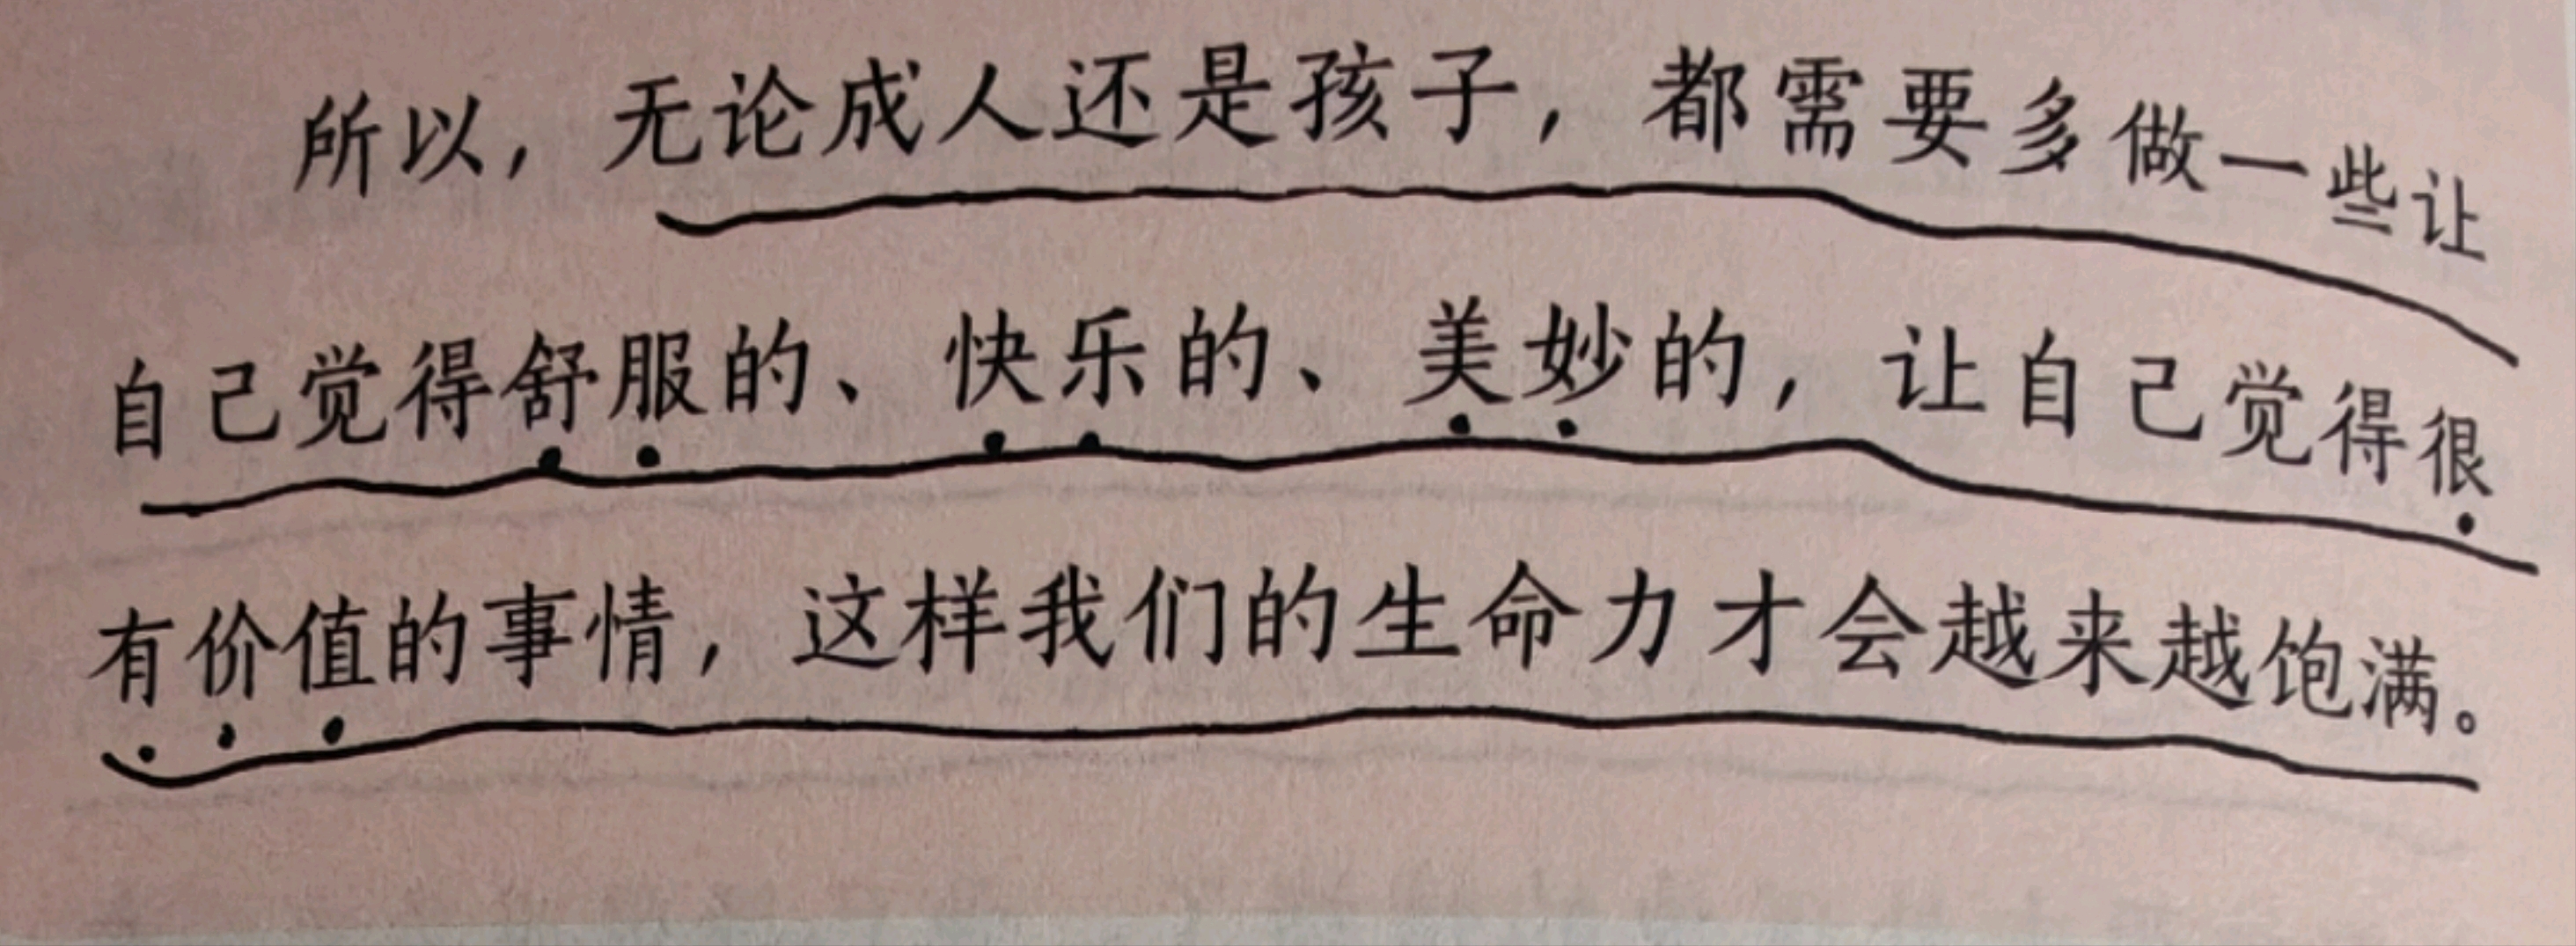 所以，无论成人还是孩子，都需要多做一些让
自己觉得舒服的、快乐的、美妙的，让自己觉得很
有价值的事情，这样我们的生命力才会越来越饱满。